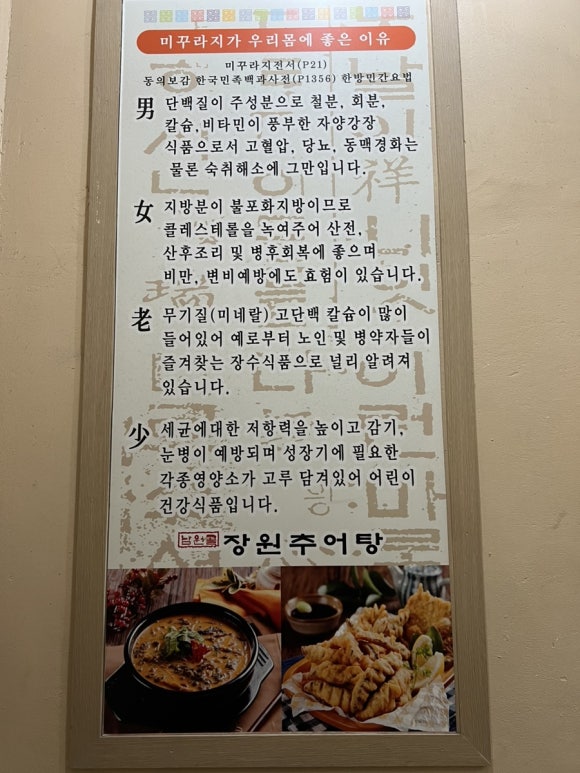 미꾸라지가 우리몸에 좋은 이유
미꾸라지전서(P21)
동의보감 한국민족백과사전(P1356) 한방민간요법
男 단백질이 주성분으로 철분, 회분,
칼슘, 비타민이 풍부한 자양강장
식품으로서 고혈압, 당뇨, 동맥경화는
물론 숙취해소에 그만입니다.
女 지방분이 불포화지방이므로
콜레스테롤을 녹여주어 산전,
산후조리 및 병후회복에 좋으며
비만, 변비예방에도 효험이 있습니다.
老 무기질(미네랄) 고단백 칼슘이 많이
들어있어 예로부터 노인 및 병약자들이
즐겨찾는 장수식품으로 널리 알려져
있습니다.
少 세균에대한 저항력을 높이고 감기,
눈병이 예방되며 성장기에 필요한
각종영양소가 고루 담겨있어 어린이
건강식품입니다.
남원 장원추어탕